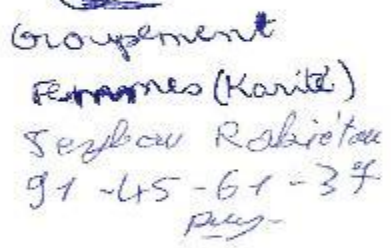 Groupement
Femmes (Karité)
Rabiétou
91-45-61-37